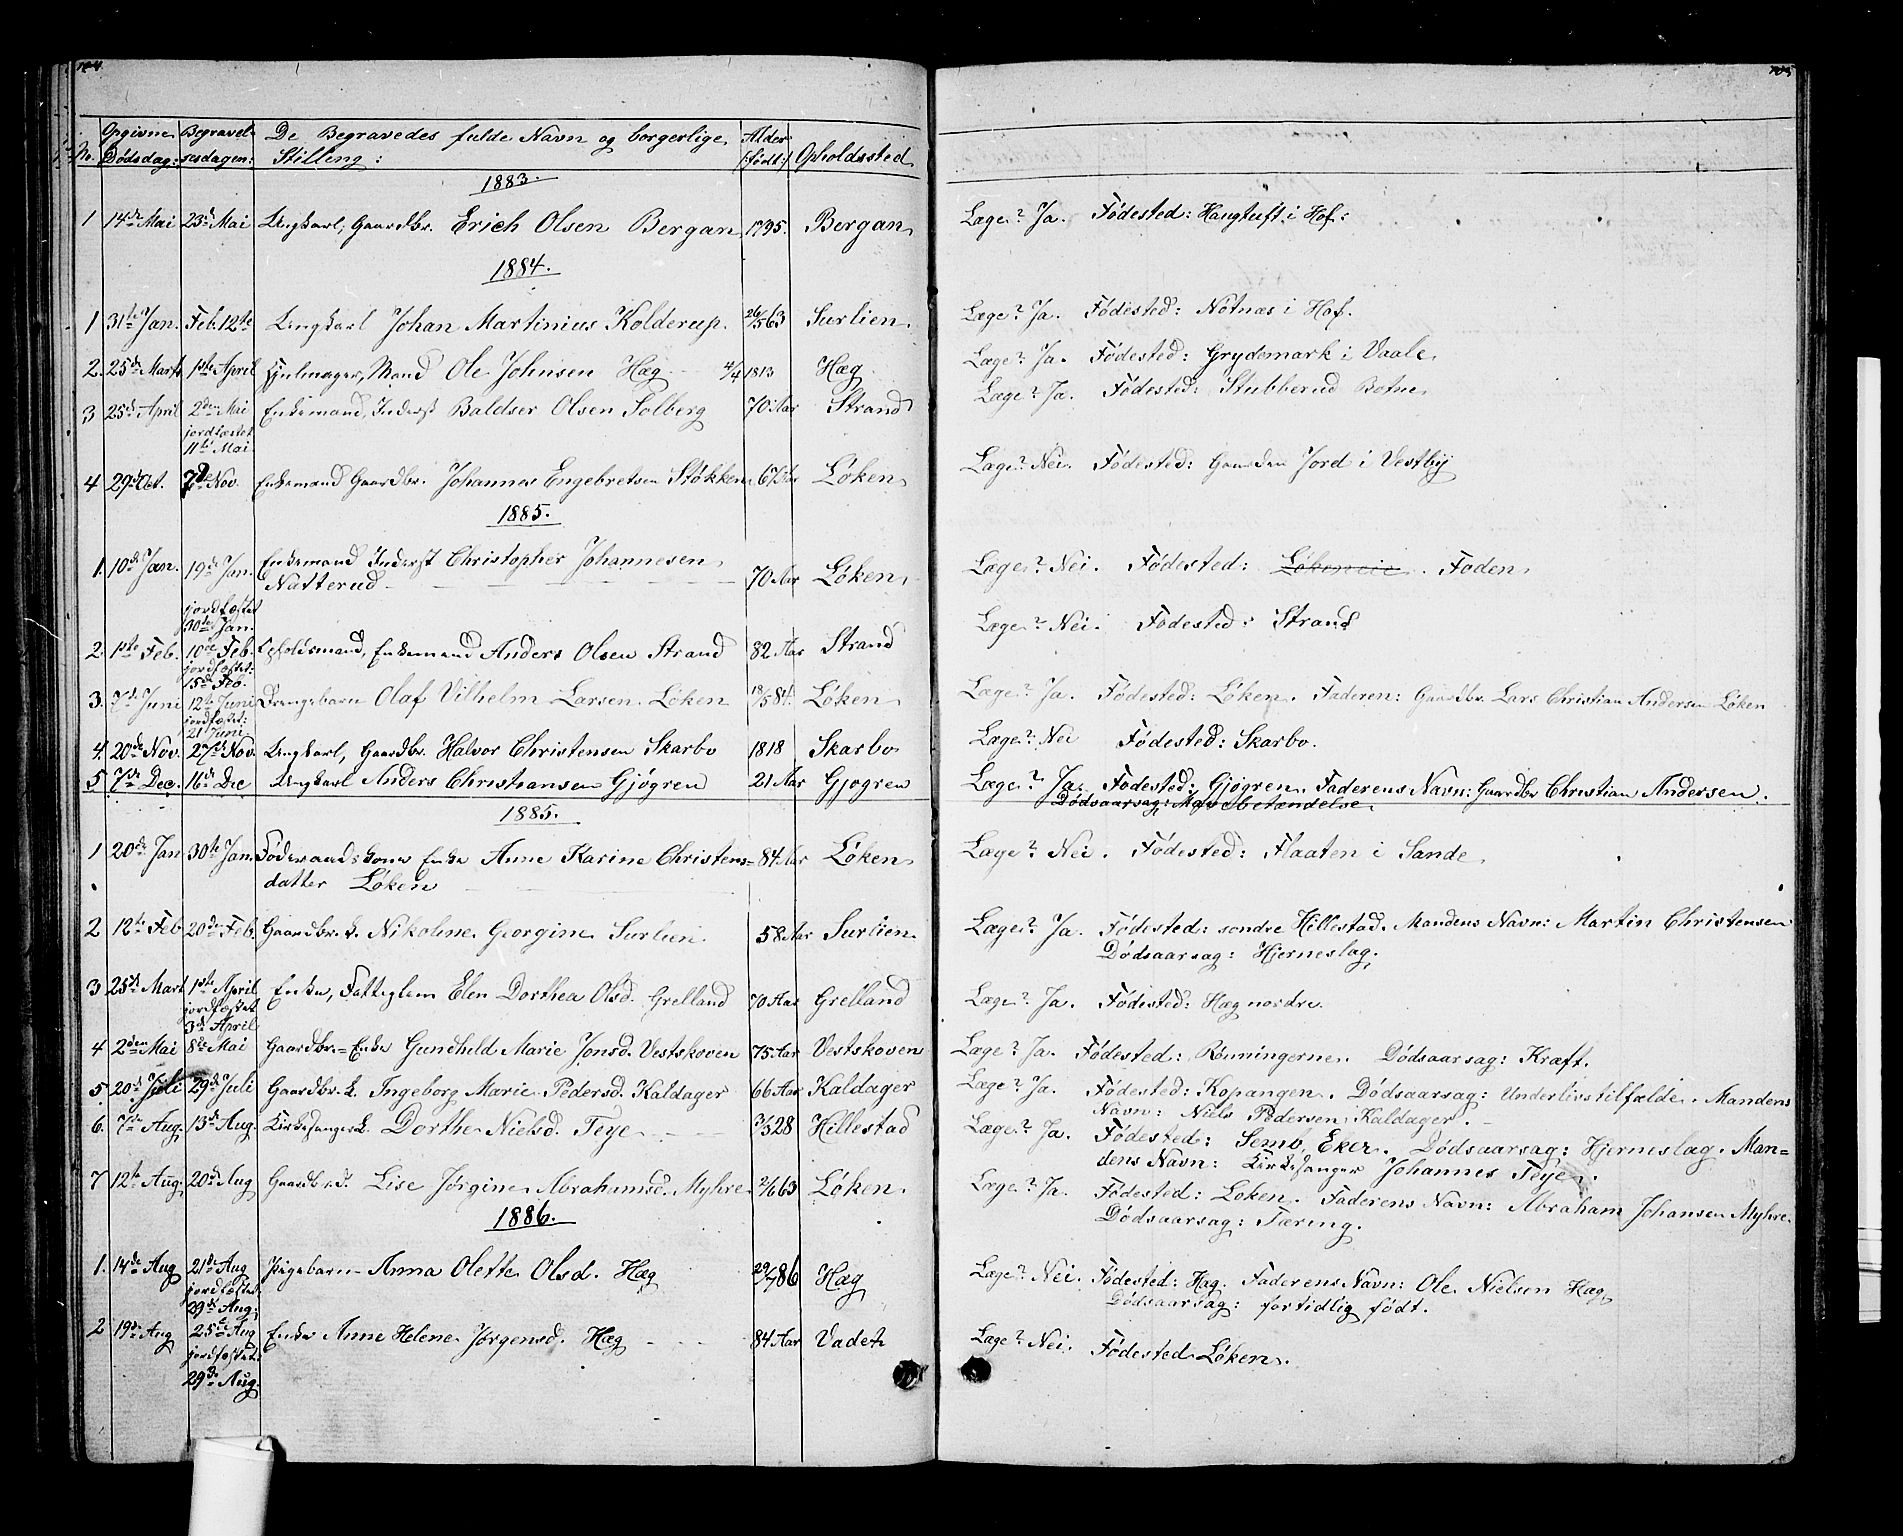 104
105
No. Opgivne Dødsdag: Begravelsesdagen: De Begravedes fulde Navn og borgerlige Stilling: Alder (født:) Opholdssted
1883.
1 14de Mai 23de Mai Ungkarl, Gaardbr. Erich Olsen Bergan 1795. Bergan Læge? Ja. Fødested: Haugtuft i Hof.
1884.
1 31te Jan. Feb. 12te Ungkarl Johan Martinius Kolderup. 26/5 63 Surlien. Læge? Ja. Fødested: Nøtnæs i Hof.
2. 25de Marts 1ste April Hjulmager, Mand Ole Johnsen Hæg 4/4 1813 Hæg Læge? Ja. Fødested: Grydemark i Vaale
3 25de April 2den Mai Enkemand, Inderst Baldser Olsen Solberg 70 Aar Strand Læge? Ja. Fødested: Stubberud Botne
jordfæstet
11te Mai.
4 29de Oct. 7de Nov. Enkemand Gaardbr. Johannes Engebretsen Støkken 67 Aar Løken Læge? Nei. Fødested: Gaarden Jord i Vestby
1885.
1. 10de Jan. 19de Jan. Enkemand Inderst Christopher Johannesen 70 Aar Løken Læge? Nei. Fødested: Løkeneie. Foden
Natterud
jordfæstet
30te Jan.
2. 1ste Feb. 10de Feb. Enkemand Anders Olsen Strand 82 Aar Strand Læge? Nei. Fødested: Strand
jordfæstet:
15de Feb.
3. 7de Juni 12te Juni Drengebarn Olaf Vilhelm Larsen Løken 18/5 84. Løken Læge? Ja. Fødested: Løken. Faderen: Gaardbr. Lars Christian Andersen Løken
jordfæstet:
21 Juni
4. 20de Nov. 27de Nov. Ungkarl, Gaardbr. Halvor Christensen Skarbo 1818 Skarbo Læge? Nei Fødested: Skarbo.
5 7de Dec. 16de Dec Ungkarl Anders Christiansen Gjøgren 21 Aar Gjøgren Læge? Ja. Fødested: Gjøgren. Faderens Navn: Gaardbr Christian Andersen.
Dødsaarsag: Mavebetændelse.
1885.
1 20de Jan 30te Jan. Føderaadskone Enke Anne Karine Christens= 84 Aar Løken Læge? Nei. Fødested: Flaaten i Sande
datter Løken
2 12te Feb 20de Feb. Gaardbr. k. Nikoline Georgine Surlien. 58 Aar Surlien Læge? Ja. Fødested: søndre Hillestad. Mandens Navn: Martin Christensen
Dødsaarsag: Hjerneslag.
3 25de Mart 1ste April Enke, Fattiglem Elen Dorthea Olsd. Grelland 70 Aar Grelland Læge? Ja. Fødested: Hæg nordre.
jordfæstet
3de April
4 2den Mai 8de Mai Gaardbr.=Enke Gundhild Marie Jonsd. Vestskoven 75 Aar Vestskoven Læge? Ja. Fødested: Rønningerne. Dødsaarsag: Kræft.
5. 20de Juli 29de Juli Gaardbr. k. Ingeborg Marie Pedersd. Kaldager 66 Aar Kaldager Læge? Ja. Fødested: Kopangen. Dødsaarsag: Underlivstilfælde. Mandens
Navn: Niels Pedersen Kaldager.
6. 7de Aug. 13de Aug. Kirkesanger k. Dorthe Nielsd. Teye 7/5 28 Hillestad Læge? Ja. Fødested: Semb, Eker. Dødsaarsag: Hjerneslag. Man=
dens Navn: Kirkesanger Johannes Teye.
7 12te Aug. 20de Aug Gaardbr. d. Lise Jørgine Abrahamsd. Myhre 2/6 63 Løken. Læge? Ja. Fødested: Løken. Faderens Navn: Abraham Johansen Myhre.
Dødsaarsag: Tæring.
1886.
1. 14de Aug 21de Aug Pigebarn Anna Olette Olsd. Hæg 29/7 86 Hæg Læge? Nei. Fødested: Hæg. Faderens Navn: Ole Nielsen Hæg
jordfæstet: Dødsaarsag: fortidlig født.
29de Aug:
2 19de Aug 25de Aug Enke Anne Helene Jørgensd. Hæg 84 Aar Vadet Læge? Nei. Fødested Løken.
jordfæstet:
29de Aug.